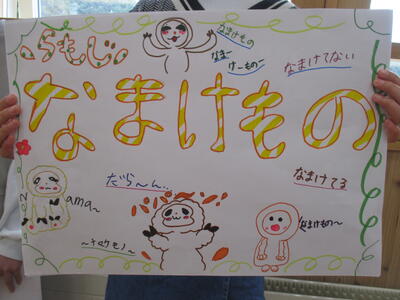 らもじ
なまけもの
なまーけーものー
なまけてない
なまけもの
だら〜ん..
なまけてる
ama〜
なまけもの〜
〜ナマケモノ〜